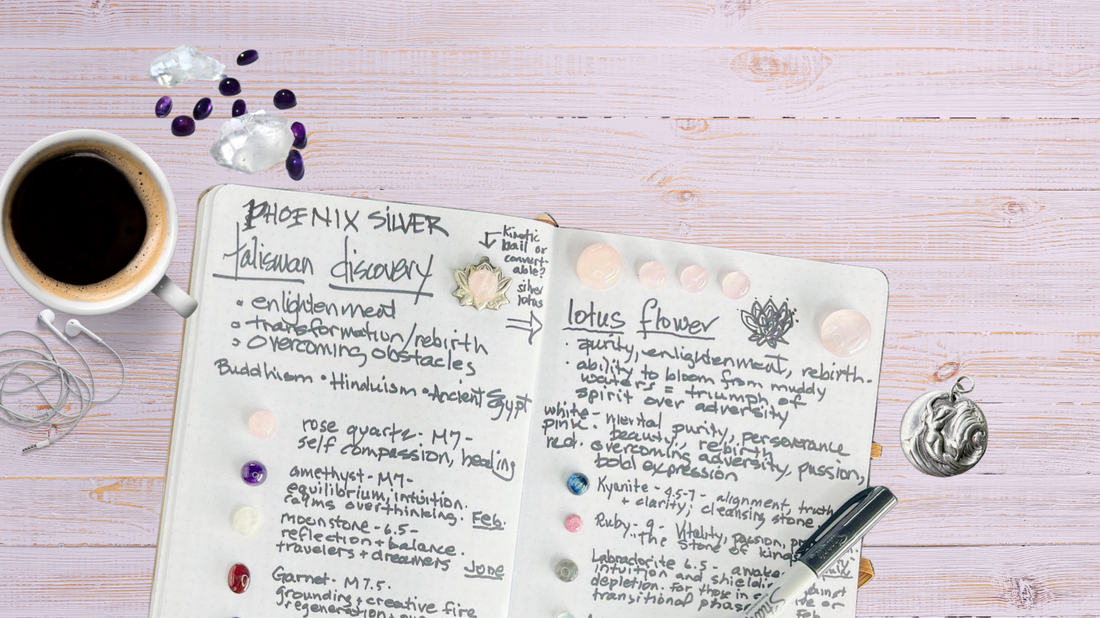 PHOENIX SILVER
talisman discovery
• enlightenment
• transformation/rebirth
• overcoming obstacles
Buddhism • Hinduism • Ancient Egypt
kinetic
bail or
convert-
able?
silver
lotus
rose quartz: M7-
self compassion, healing
amethyst - M7-
equilibrium, intuition.
calms overthinking. Feb.
moonstone - 6.5-
reflection + balance.
travelers + dreamers
June
Garnet - M7.5.
grounding + creative fire
lotus flower
• purity, enlightenment, rebirth.
• ability to bloom from muddy
waters = triumph of
spirit over adversity
white - mental purity,
pink - beauty, rebirth, perseverance
red - overcoming adversity, passion,
bold expression
Kyanite - 4.5-7 - alignment, truth
+ clarity; cleansing stone
Ruby - 9 - Vitality, passion,
"the stone of kings
Labradorite 6.5 -
intuition and
depletion. for those in
transitional
Feb